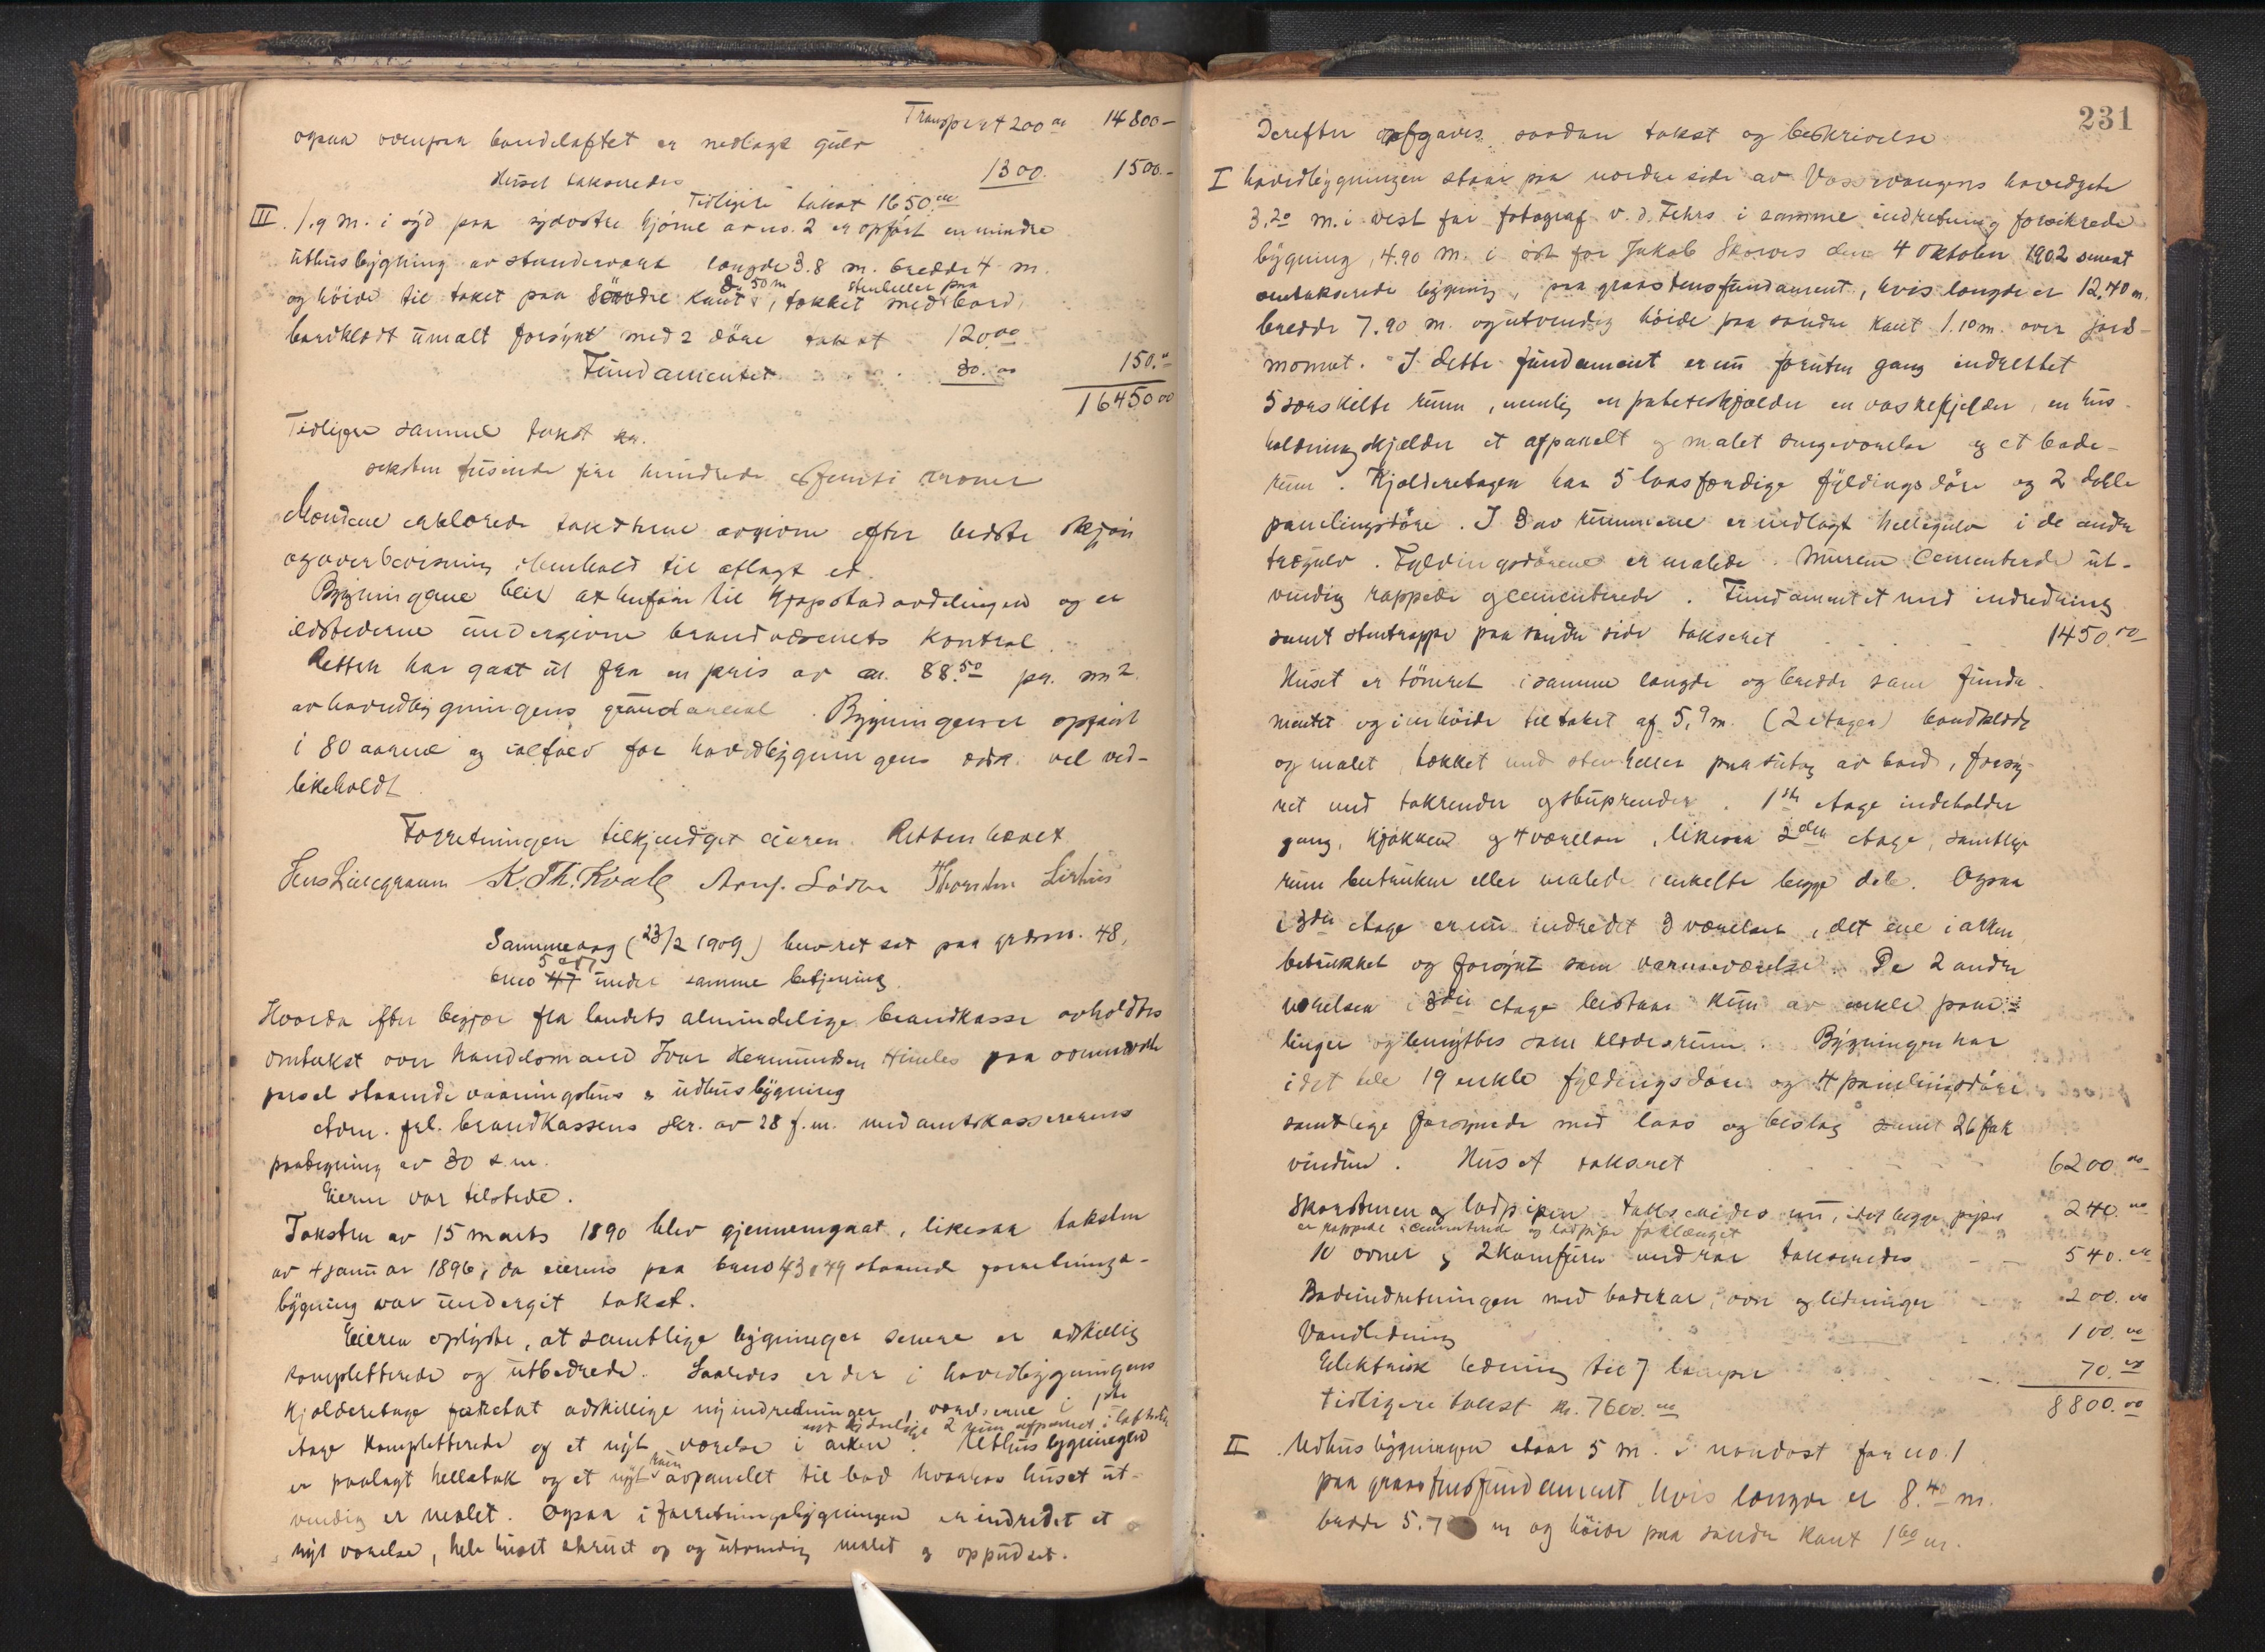 Transport 200.00 14800-
ogsaa ovenpaa bandeloftet er nedlagt gulv
Huset takseredes 1300. 1500.-
Tidligere takst 1650.00
III. 1.9 m. i syd paa sydøstre hjørne av no. 2 er opført en mindre
uthusbygning av stenderverk længde 3.8 m. bredde 4 m.
og höide til taket paa søndre kant 2.50 m, tækket med stenheller paa bord,
bordklædt umalt forsynt med 2 døre takst 120.00
Fundamentet 30.00 150.00
16450.00
Tidligere samme takst kr.
seksten tusinde fire hundrede & femti kroner
Mændene erklærede taksterne avgivne efter bedste skjön
og overbevisning i henhold til aflagt ed.
Bygningene blir at henføre til kjøpstadavdelingen og er
ildstederne undergivne brandvæsenets kontrol.
Retten har gaat ut fra en pris av kr. 88.50 pr. m2.
av hovedbygningens grundareal. Bygningene er opført
i 80 aarene og ialfald for hovedbygningens vedk. vel ved-
likeholdt.
Forretningen tilkjendgit eieren. Retten hævet
Jens Liliegraven K. Th. Kvale Arnf. Lödve Thorsten Lirhus
Samme dag (23/2 1909) blev ret sat paa grdsn. 48,
bno 47 5 og 7 under samme betjening.
Hvorda efter begjær fra landets almindelige brandkasse avholdtes
omtakst over handelsmand Ivar Hermundsen Himles paa ovennævnte
parsel staaende vaaningshus & udhusbygning
Adm. frl. brandkassens skr. av 28 f.m. med amtskassererens
paategning av 30 s.m.
Eieren var tilstede.
Taksten av 15 marts 1890 blev gjennemgaat, likesaa taksten
av 4 januar 1896, da eierens paa bno 43 & 49 staaende forretnings-
bygning var undergit takst.
Eieren oplyste, at samtlige bygninger senere er adskillig
kompletterede og utbedrede. Saaledes er der i hovedbygningens
kjælderetage foretat adskillige nyindredninger, værelserne i 1ste
etage kompletterede og et nyt værelse i arken samt 2 rum afpanelet i loftsetagen. Uthusbygningen
er paalagt helletak og et nyt rum avpanelet til bod hvorhos huset ut-
vendig er malet. Ogsaa i forretningsbygningen er indredet et
nyt værelse, hele huset skruet op og utvendig malet og oppudset.
231
Derefter afgaves saadan takst og beskrivelse
I Hovedbygningen staar paa nordre side av Vossevangens hovedgate
3.20 m. i vest for fotograf v. d. Fehrs i samme indretning forsikrede
bygning, 4.90 m. i öst for Jakob Skorves den 4 oktober 1902 senest
omtakserede bygning, paa graastensfundament, hvis længde er 12.40 m.
bredde 7.90 m. og utvendig höide paa søndre kant 1.10 m. over jord-
smonnet. I dette fundament er nu foruten gang indrettet
5 særskilte rum, nemlig en potetkjælder en vaskekjelder, en hus-
holdningskjælder et afpanelt og malet sengeværelse og et bade-
rum. Kjælderetagen har 5 laasfærdige fyldingsdöre og 2 doble
panelingsdöre. I 3 av rummene er nedlagt hellegulv i de andre
trægulv. Fyldingsdörene er malede. Murene cementerede ut-
vendig rappede og cementerede. Fundamentet med indredning
samt stentrappe paa søndre side takseret 1450.00
Huset er tömret i samme længde og bredde som funda-
mentet og i en höide til taket af 5.9 m. (2 etager) bordklædt
og malet, tækket med stenheller paa sutag av bord, forsy-
net med takrender og stuprender. 1ste etage indeholder
gang, kjøkken og 4 værelser, likesaa 2den etage, samtlige
rum betrukne eller malede i enkelte begge dele. Ogsaa
i 3die etage er nu indredet 3 værelser, det ene i arken
betrukket og forsynt som værelse. De 2 andre
værelser i 3die etage bestaar kun av enkle pane-
linger og benyttes som klædesrum. Bygningen har
i det hele 19 enkle fyldingsdøre og 4 panelingsdøre
samtlige forsynede med laas og beslag samt 26 fak
vinduer. Huset takseret 6200.00
Skorstenen og ladpipen takseredes nu, idet begge piper 240.00
er rappede i cementerede og ladpipe forlænget
10 ovner og 2 komfurer med rør takseredes 540.00
Badeindretningen med badekar, ovn og ledninger 200.00
Vandledning 100.00
Elektrisk ledning til 7 lamper 70.00
tidligere takst kr. 7600.00 8800.00
II Udhusbygningen staar 5 m. i nordost for no. 1
paa graastensfundament hvis længde er 8.40 m.
bredde 5.7 m og höide paa søndre kant 1.60 m.